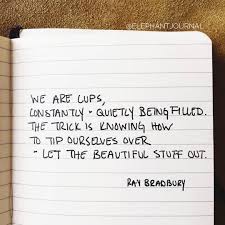 @ELEPHANTJOURNAL
WE ARE CUPS,
CONSTANTLY - QUIETLY BEING FILLED.
THE TRICK IS KNOWING HOW
TO TIP OURSELVES OVER
- LET THE BEAUTIFUL STUFF OUT.
RAY BRADBURY